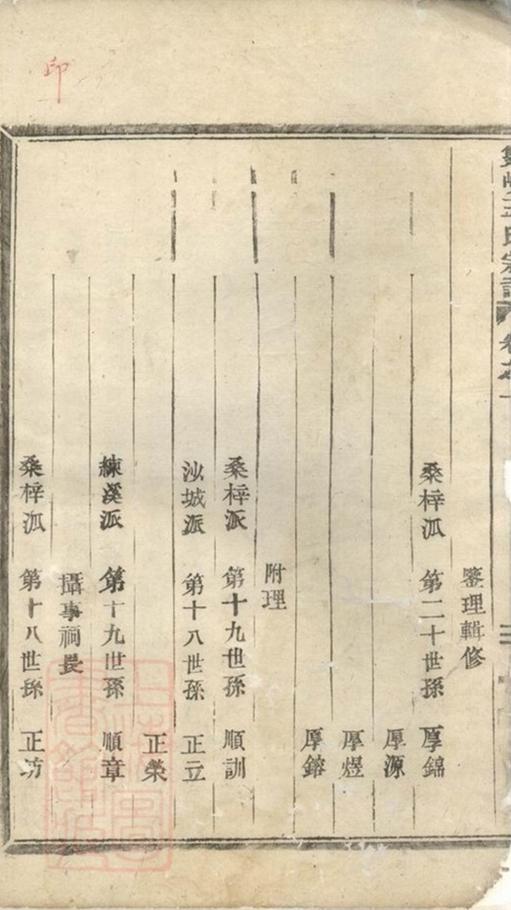 王氏宗譜 卷之一
鑒理輯修
桑梓派 第二十世孫 厚錦
厚源
厚煜
厚鎔
附理
桑梓派 第十九世孫 順訓
沙城派 第十八世孫 正立
正榮
練溪派 第十九世孫 順章
攝事祠長
桑梓派 第十八世孫 正坊
印